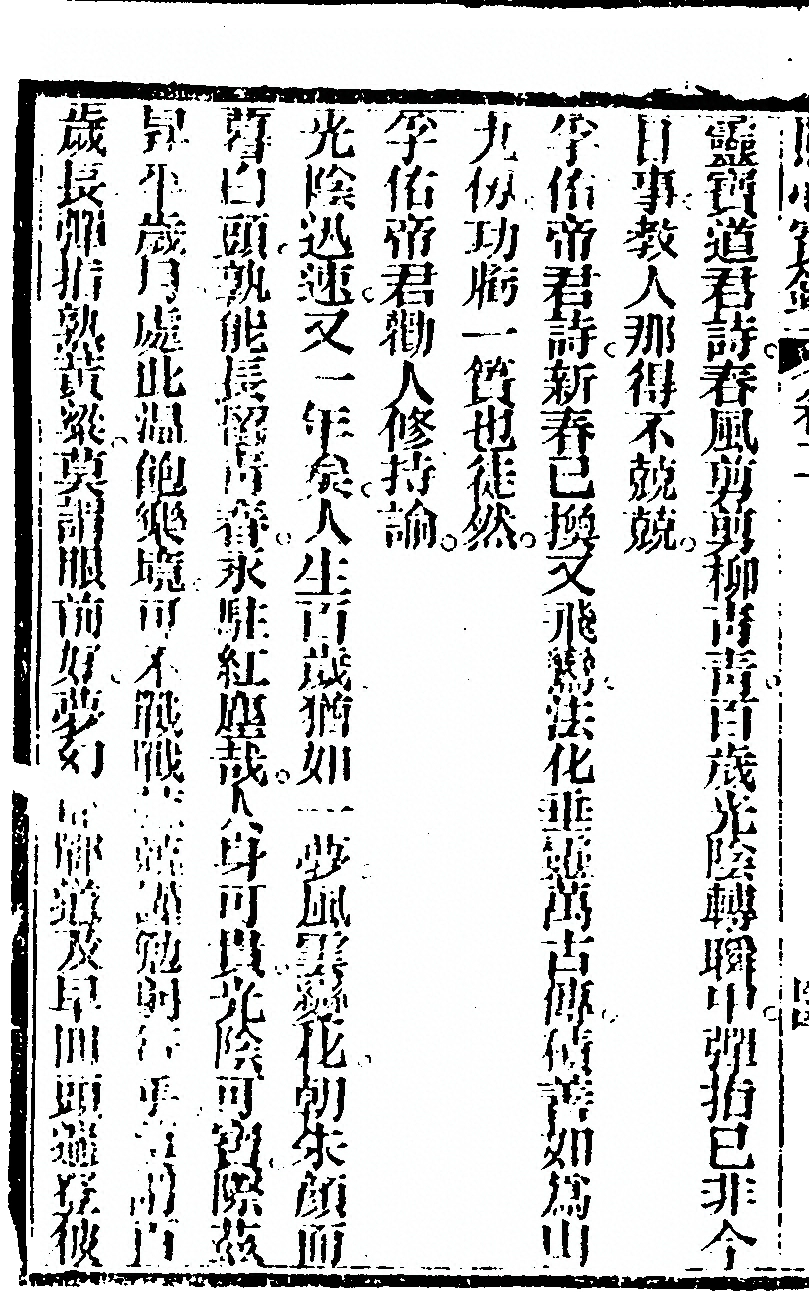 靈寶道君詩。春風剪剪柳青青。百歲光陰轉瞬中。彈指已非今
日事。教人那得不兢兢。
孚佑帝君詩。新春已換又飛鸞。法化垂慈萬古傳。積善如為山
九仞。功虧一簣也徒然。
孚佑帝君勸人修持諭。
光陰迅速。又一年矣。人生百歲。猶如一夢。風雲變化。朝朱顏而
暮白頭。孰能長留青春。永駐紅塵哉。人身可貴。光陰可寶。際茲
昇平歲月。處此溫飽樂境。可不戰戰兢兢勉
歲長。彈指熟黃粱。莫謂眼前好。夢幻 道及早回頭